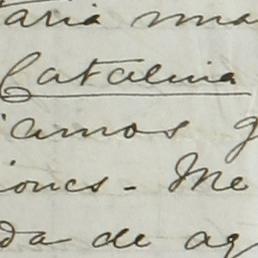 taria una
Catalina
iamos g
iones - Me
da de ag